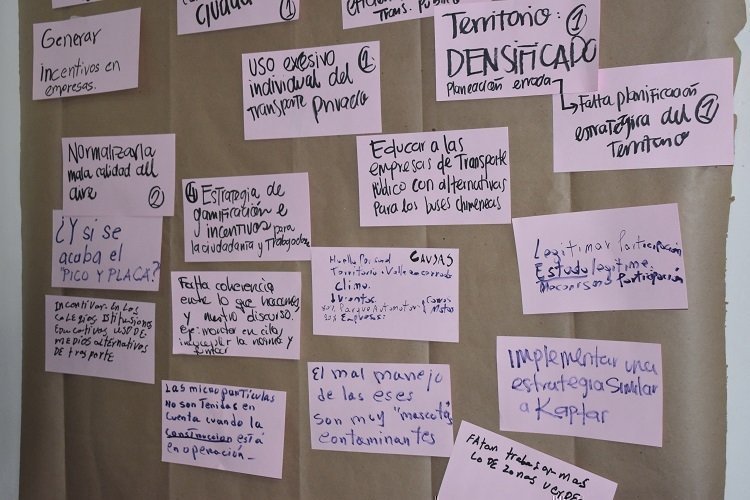 ciudad ①
Trans. Público
Generar
incentivos en
empresas.
USO excesivo ①
individual del :
Transporte Privado
Territorio: ①
DENSIFICADO
Planeación errada
Falta planificación
estratégica del ①
Territorio
Normalizar la
mala calidad del
aire ②
④ Estrategia de
gamificación e
incentivos para
la ciudadanía y Trabajadores
Educar a las
empresas de Transporte
Público con alternativas
para los buses chimeneas
¿Y si se
acaba el
"PICO Y PLACA?"
Falta coherencia
entre lo que hacemos
y nuestro discurso.
eje: montar en cicla,
la norma y
fumar
CAUSAS
Territorio: Valle encerrado
Clima.
Vientos.
Parque Automotor
Empresas:
Legitimar Participación
Estado legitime.
Mecanismos participación
Incentivar. En los
colegios
Educativas USO DE
MEDIOS alternativos
DE trasporte
Las micro partículas
no son Tenidas en
cuenta cuando la
construccion está
en operación_
El mal manejo
de las eses
son muy "mascota"
contaminantes
Implementar una
estrategia Similar
a Kaptar
trabajar mas
LO DE zonas verdes